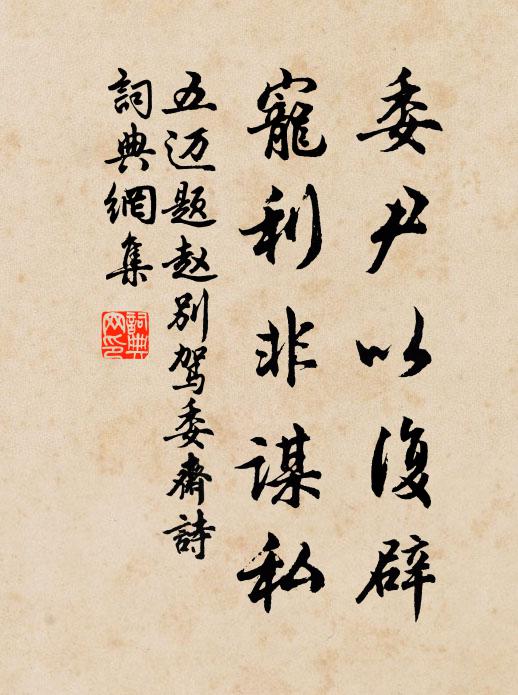 委尹以復辟
寵利非謀私
五迈题赵别驾委齋詩
詞典網集
詞典網印